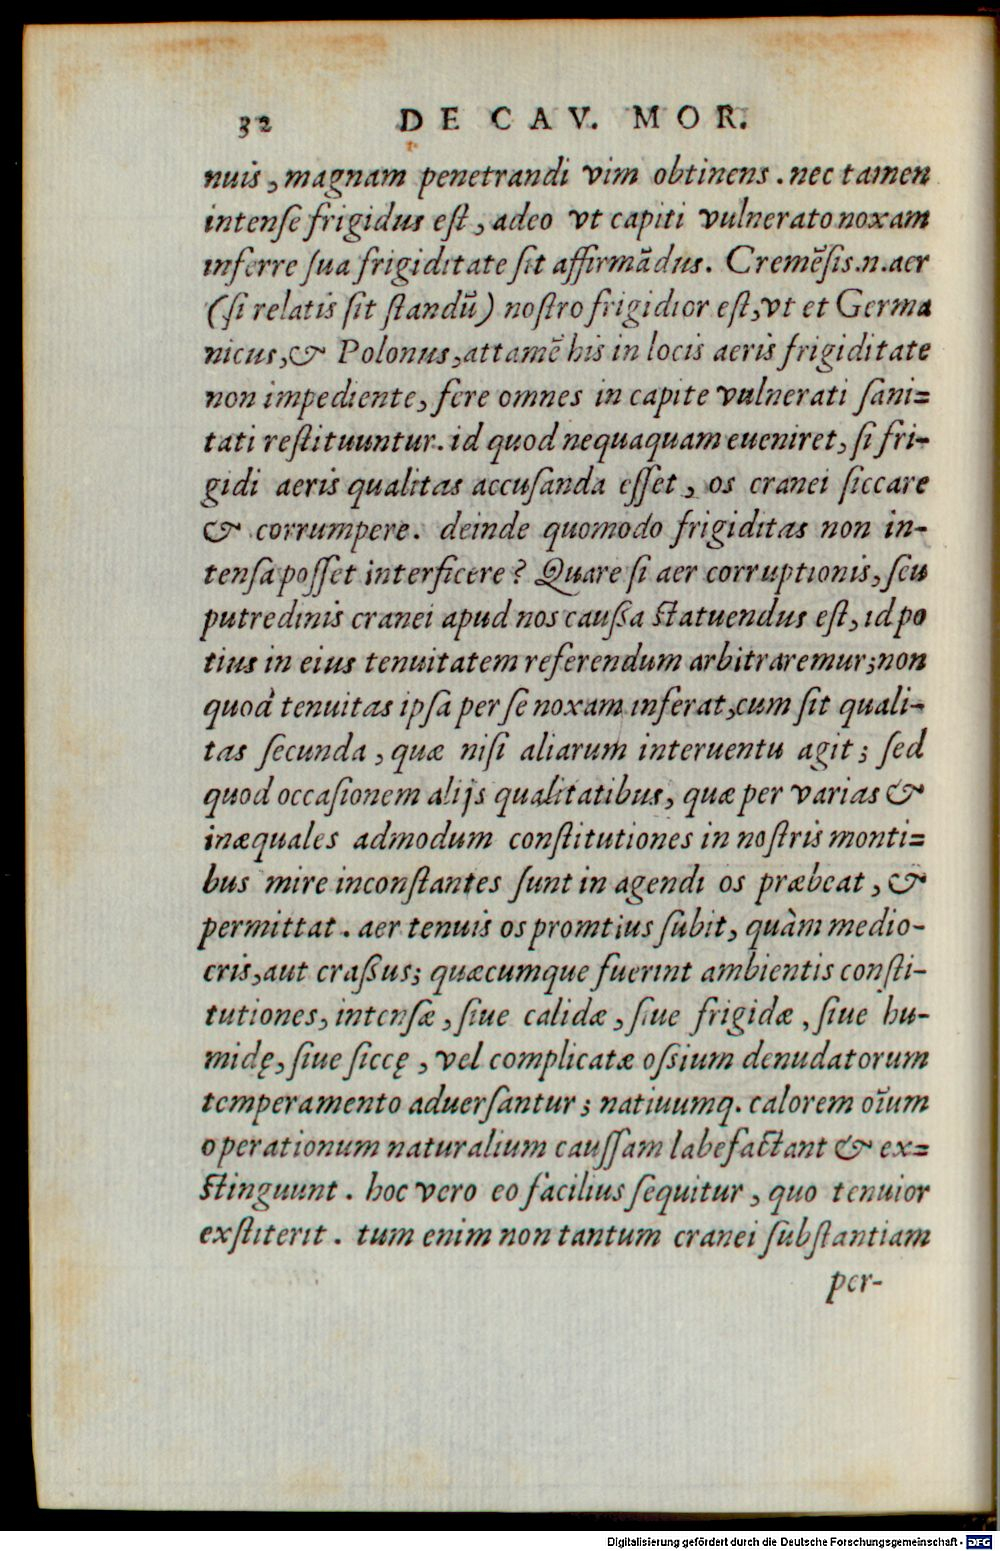 32 DE CAV. MOR.
nuis, magnam penetrandi vim obtinens. nec tamen
intenſe frigidus eſt, adeo vt capiti vulnerato noxam
inferre ſua frigiditate ſit affirmãdus. Cremẽſis.n.aer
(ſi relatis ſit ſtandũ) noſtro frigidior eſt, vt et Germa
nicus, & Polonus, attamẽ his in locis aeris frigiditate
non impediente, fere omnes in capite vulnerati ſani=
tati reſtituuntur. id quod nequaquam eueniret, ſi fri-
gidi aeris qualitas accuſanda eſſet, os cranei ſiccare
& corrumpere. deinde quomodo frigiditas non in-
tenſa poſſet interficere? Quare ſi aer corruptionis, ſeu
putredinis cranei apud nos cauſſa ſtatuendus eſt, id po
tius in eius tenuitatem referendum arbitraremur; non
quod tenuitas ipſa per ſe noxam inferat, cum ſit quali-
tas ſecunda, quæ niſi aliarum interuentu agit; ſed
quod occaſionem alijs qualitatibus, quæ per varias &
inæquales admodum conſtitutiones in noſtris monti=
bus mire inconſtantes ſunt in agendi os præbeat, &
permittat. aer tenuis os promtius ſubit, quàm medio-
cris, aut craſſus; quæcumque fuerint ambientis conſti-
tutiones, intenſæ, ſiue calidæ, ſiue frigidæ, ſiue hu-
midę, ſiue ſiccę, vel complicatæ oſsium denudatorum
temperamento aduerſantur; natiuumq. calorem oĩum
operationum naturalium cauſſam labefactant & ex=
ſtinguunt. hoc vero eo facilius ſequitur, quo tenuior
exſtiterit. tum enim non tantum cranei ſubſtantiam
per-
Digitalisierung gefördert durch die Deutsche Forschungsgemeinschaft - DFG